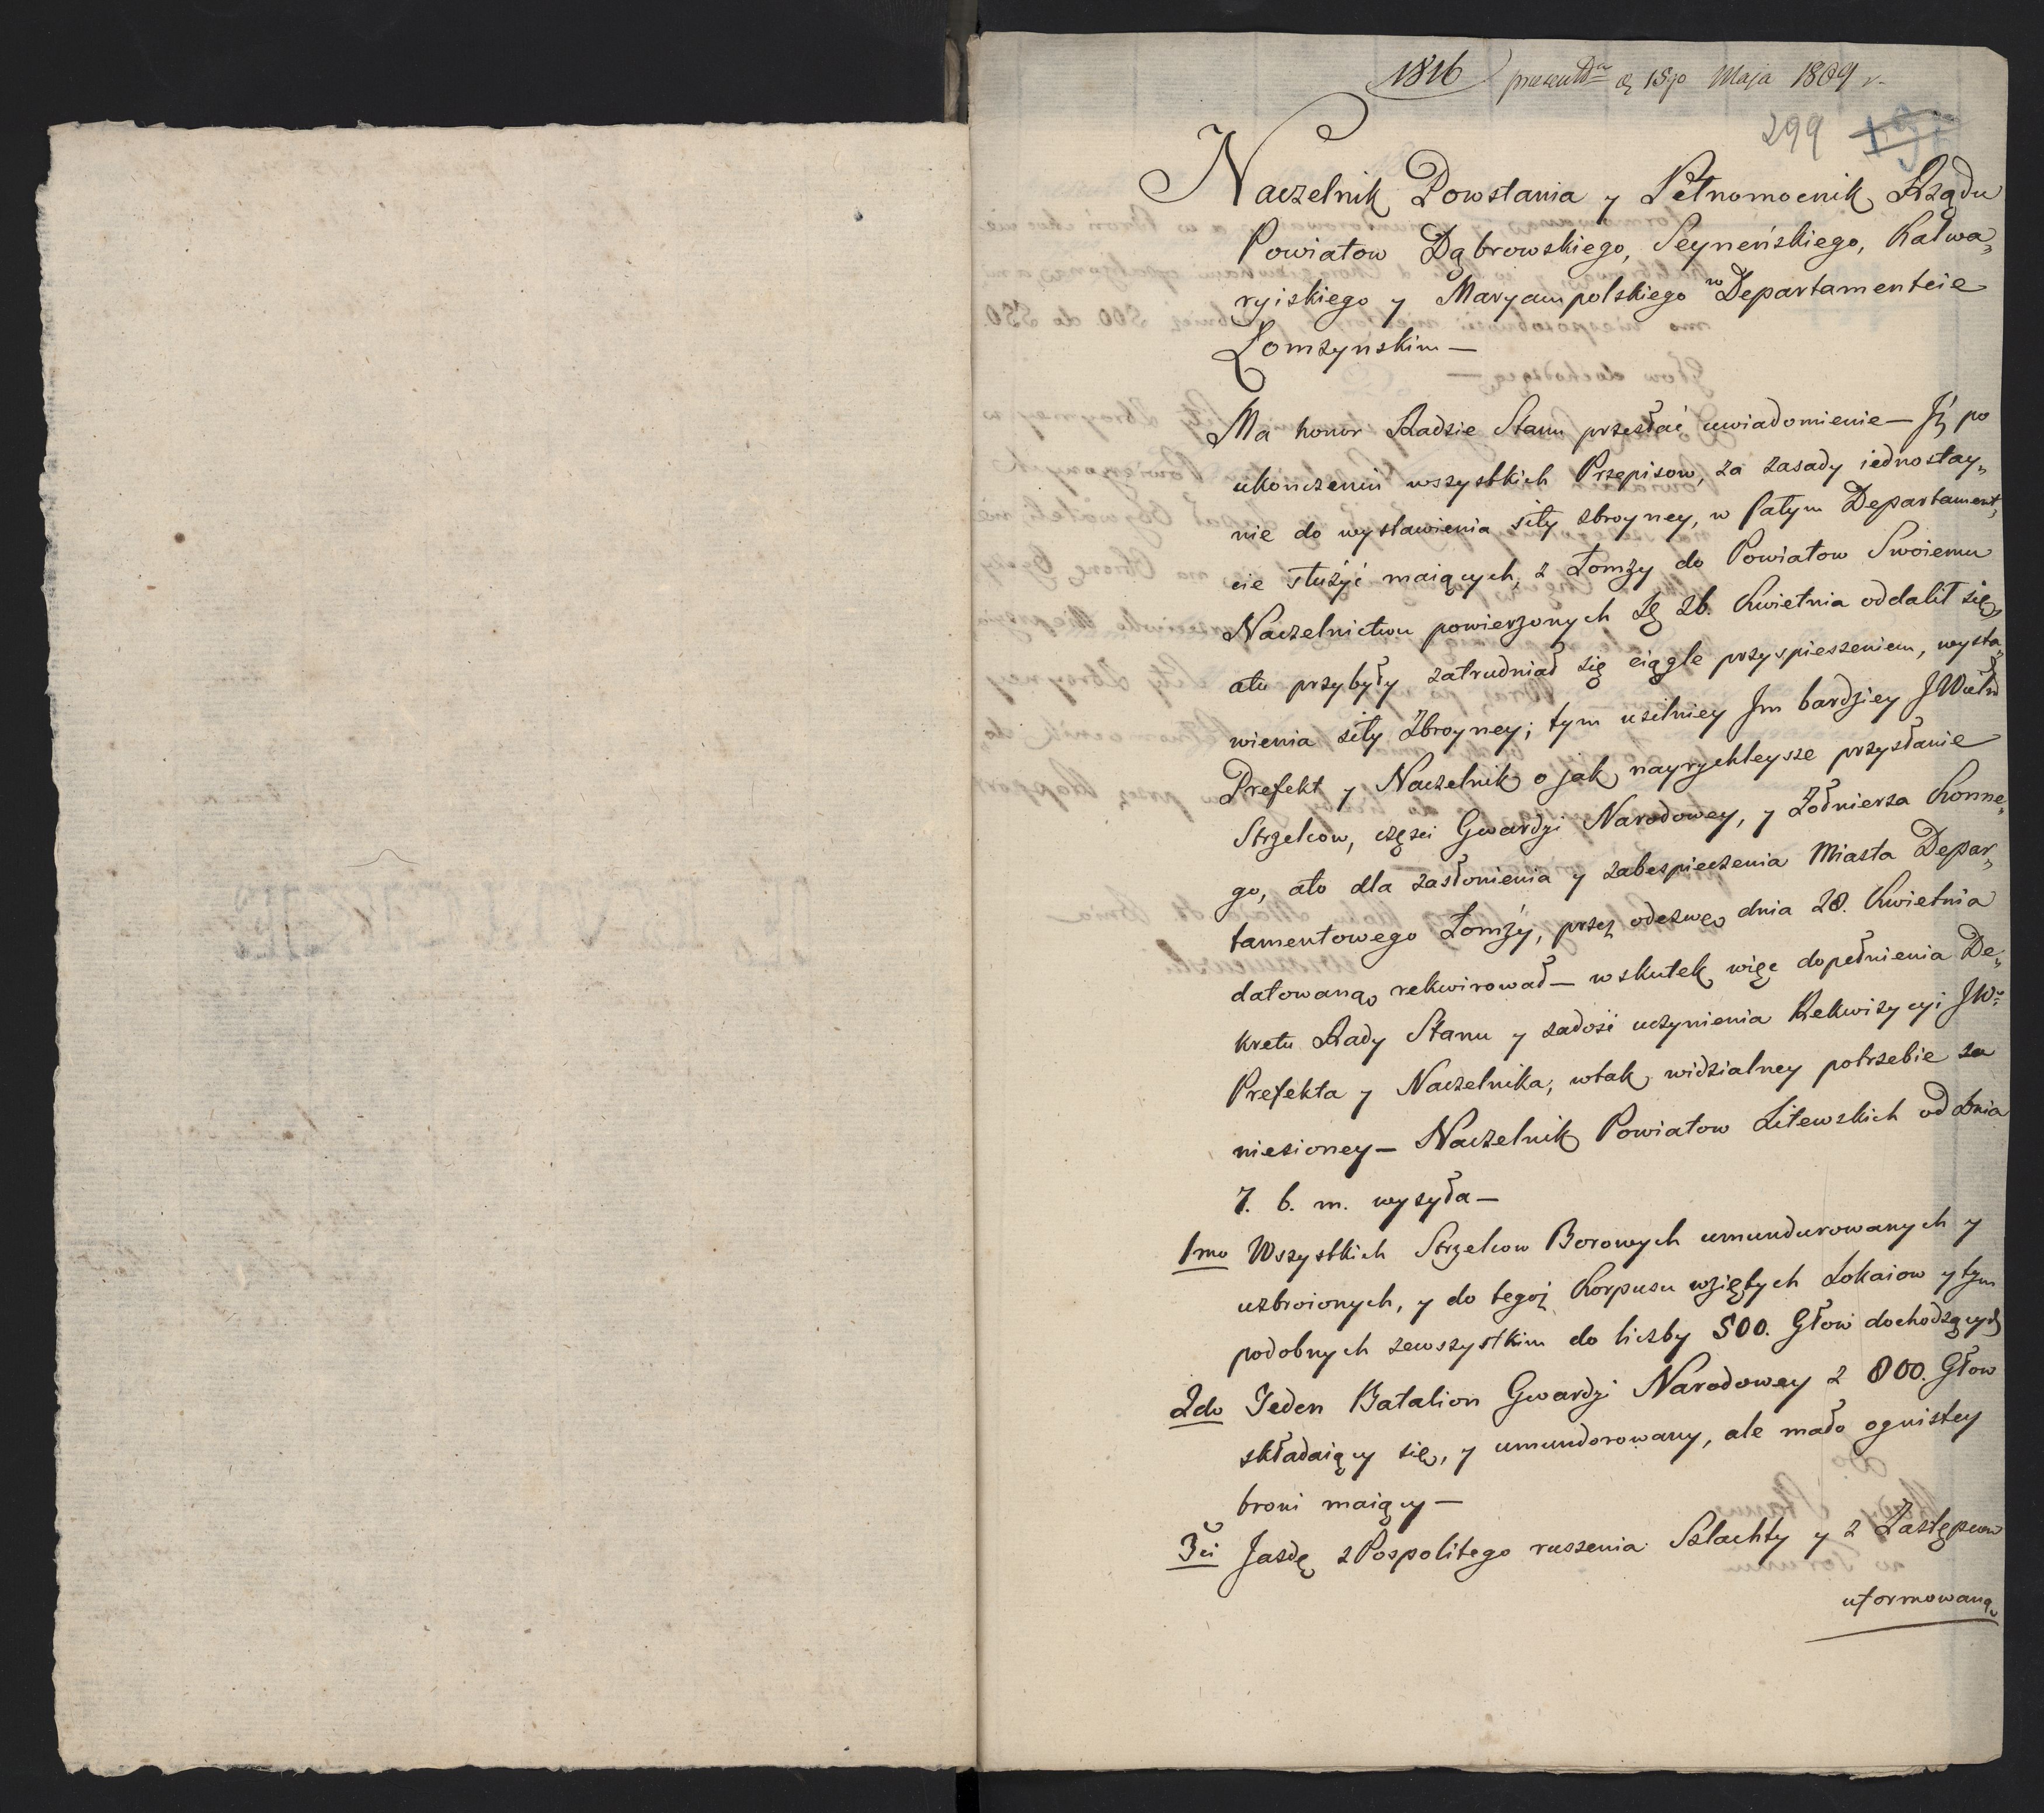 1816 presentt dn 15go Maja 1809 r.
299
Naczelnik Powstania y Pełnomocnik Rządu
Powiatow Dąbrowskiego, Seyneńskiego, Kalwa„
ryiskiego y Maryampolskiego w Departamentcie
Łomzynskim —
Ma honor Radzie Stanu przesłać uwiadomienie — Iż po
ukonczeniu wszystkich Przepisow, za zasady iednostay„
nie do wystawienia siły zbroyney, w całym Departament„
cie służyć maiących, z Łomży do Powiatow Swoiemu
Naczelnictwu powierzonych dę 26. Kwietnia oddalił się,
atu przybyły zatrudniał się ciągle przyspieszeniem, wysta„
wienia siły Zbroyney; tym usilniey Im bardziey JWielm
Prefekt y Naczelnik o jak nayrychleysze przysłanie
Strzelcow, częsci Gwardyi Narodowey, y Żołnierza Konne„
go, ato dla zasłonienia y zabespieczenia Miasta Depar„
tamentowego Łomży, przez odezwę dnia 28. Kwietnia
datowaną rekwirował — wskutek więc dopełnienia De„
kretu Rady Stanu y zadość uczynienia Rekwizycyi JWo
Prefekta y Naczelnika, wtak widzialney potrzebie za
niesioney — Naczelnik Powiatow Litewskich od dnia
7. b. m. wysyła —
1mo Wszystkich Strzelcow Borowych umundurowanych y
uzbroionych, y do tegoż Korpusu wziętych Lokaiow y tym
podobnych zewszystkim do liczby 500. Głow dochodzących
2do Ieden Batalion Gwardyi Narodowey z 800. Głow
składaiący się, y umundorowany, ale mało ognistey
broni maiący —
3ci Jazdę z Pospolitego ruszenia Szlachty y z Zastępcow
uformowaną